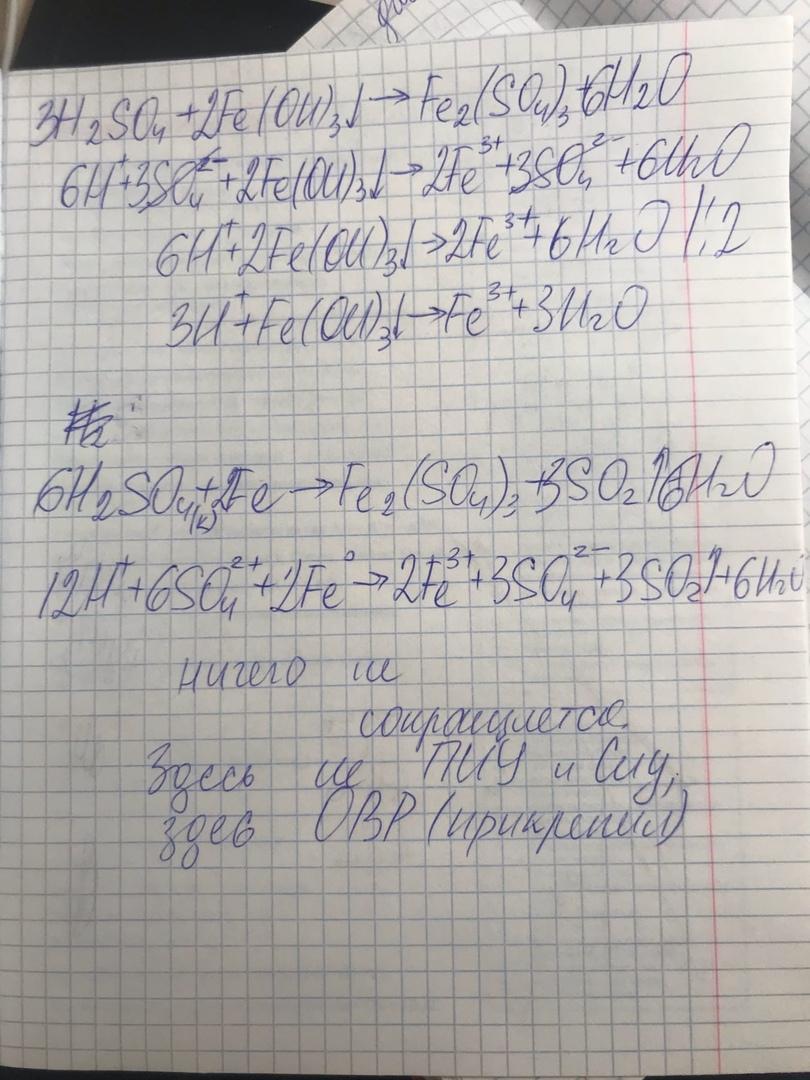 3H₂SO₄ + 2Fe(OH)₃↓ → Fe₂(SO₄)₃ + 6H₂O
6H⁺ + 3SO₄²⁻ + 2Fe(OH)₃↓ → 2Fe³⁺ + 3SO₄²⁻ + 6H₂O
6H⁺ + 2Fe(OH)₃↓ → 2Fe³⁺ + 6H₂O |:2
3H⁺ + Fe(OH)₃↓ → Fe³⁺ + 3H₂O
6H₂SO₄(к) + 2Fe → Fe₂(SO₄)₃ + 3SO₂↑ 6H₂O
12H⁺ + 6SO₄²⁺ + 2Fe⁰ → 2Fe³⁺ + 3SO₄²⁻ + 3SO₂↑ + 6H₂O
ничего не
сокращается.
Здесь не ПИУ и СИУ,
здесь ОВР (прикрепил)